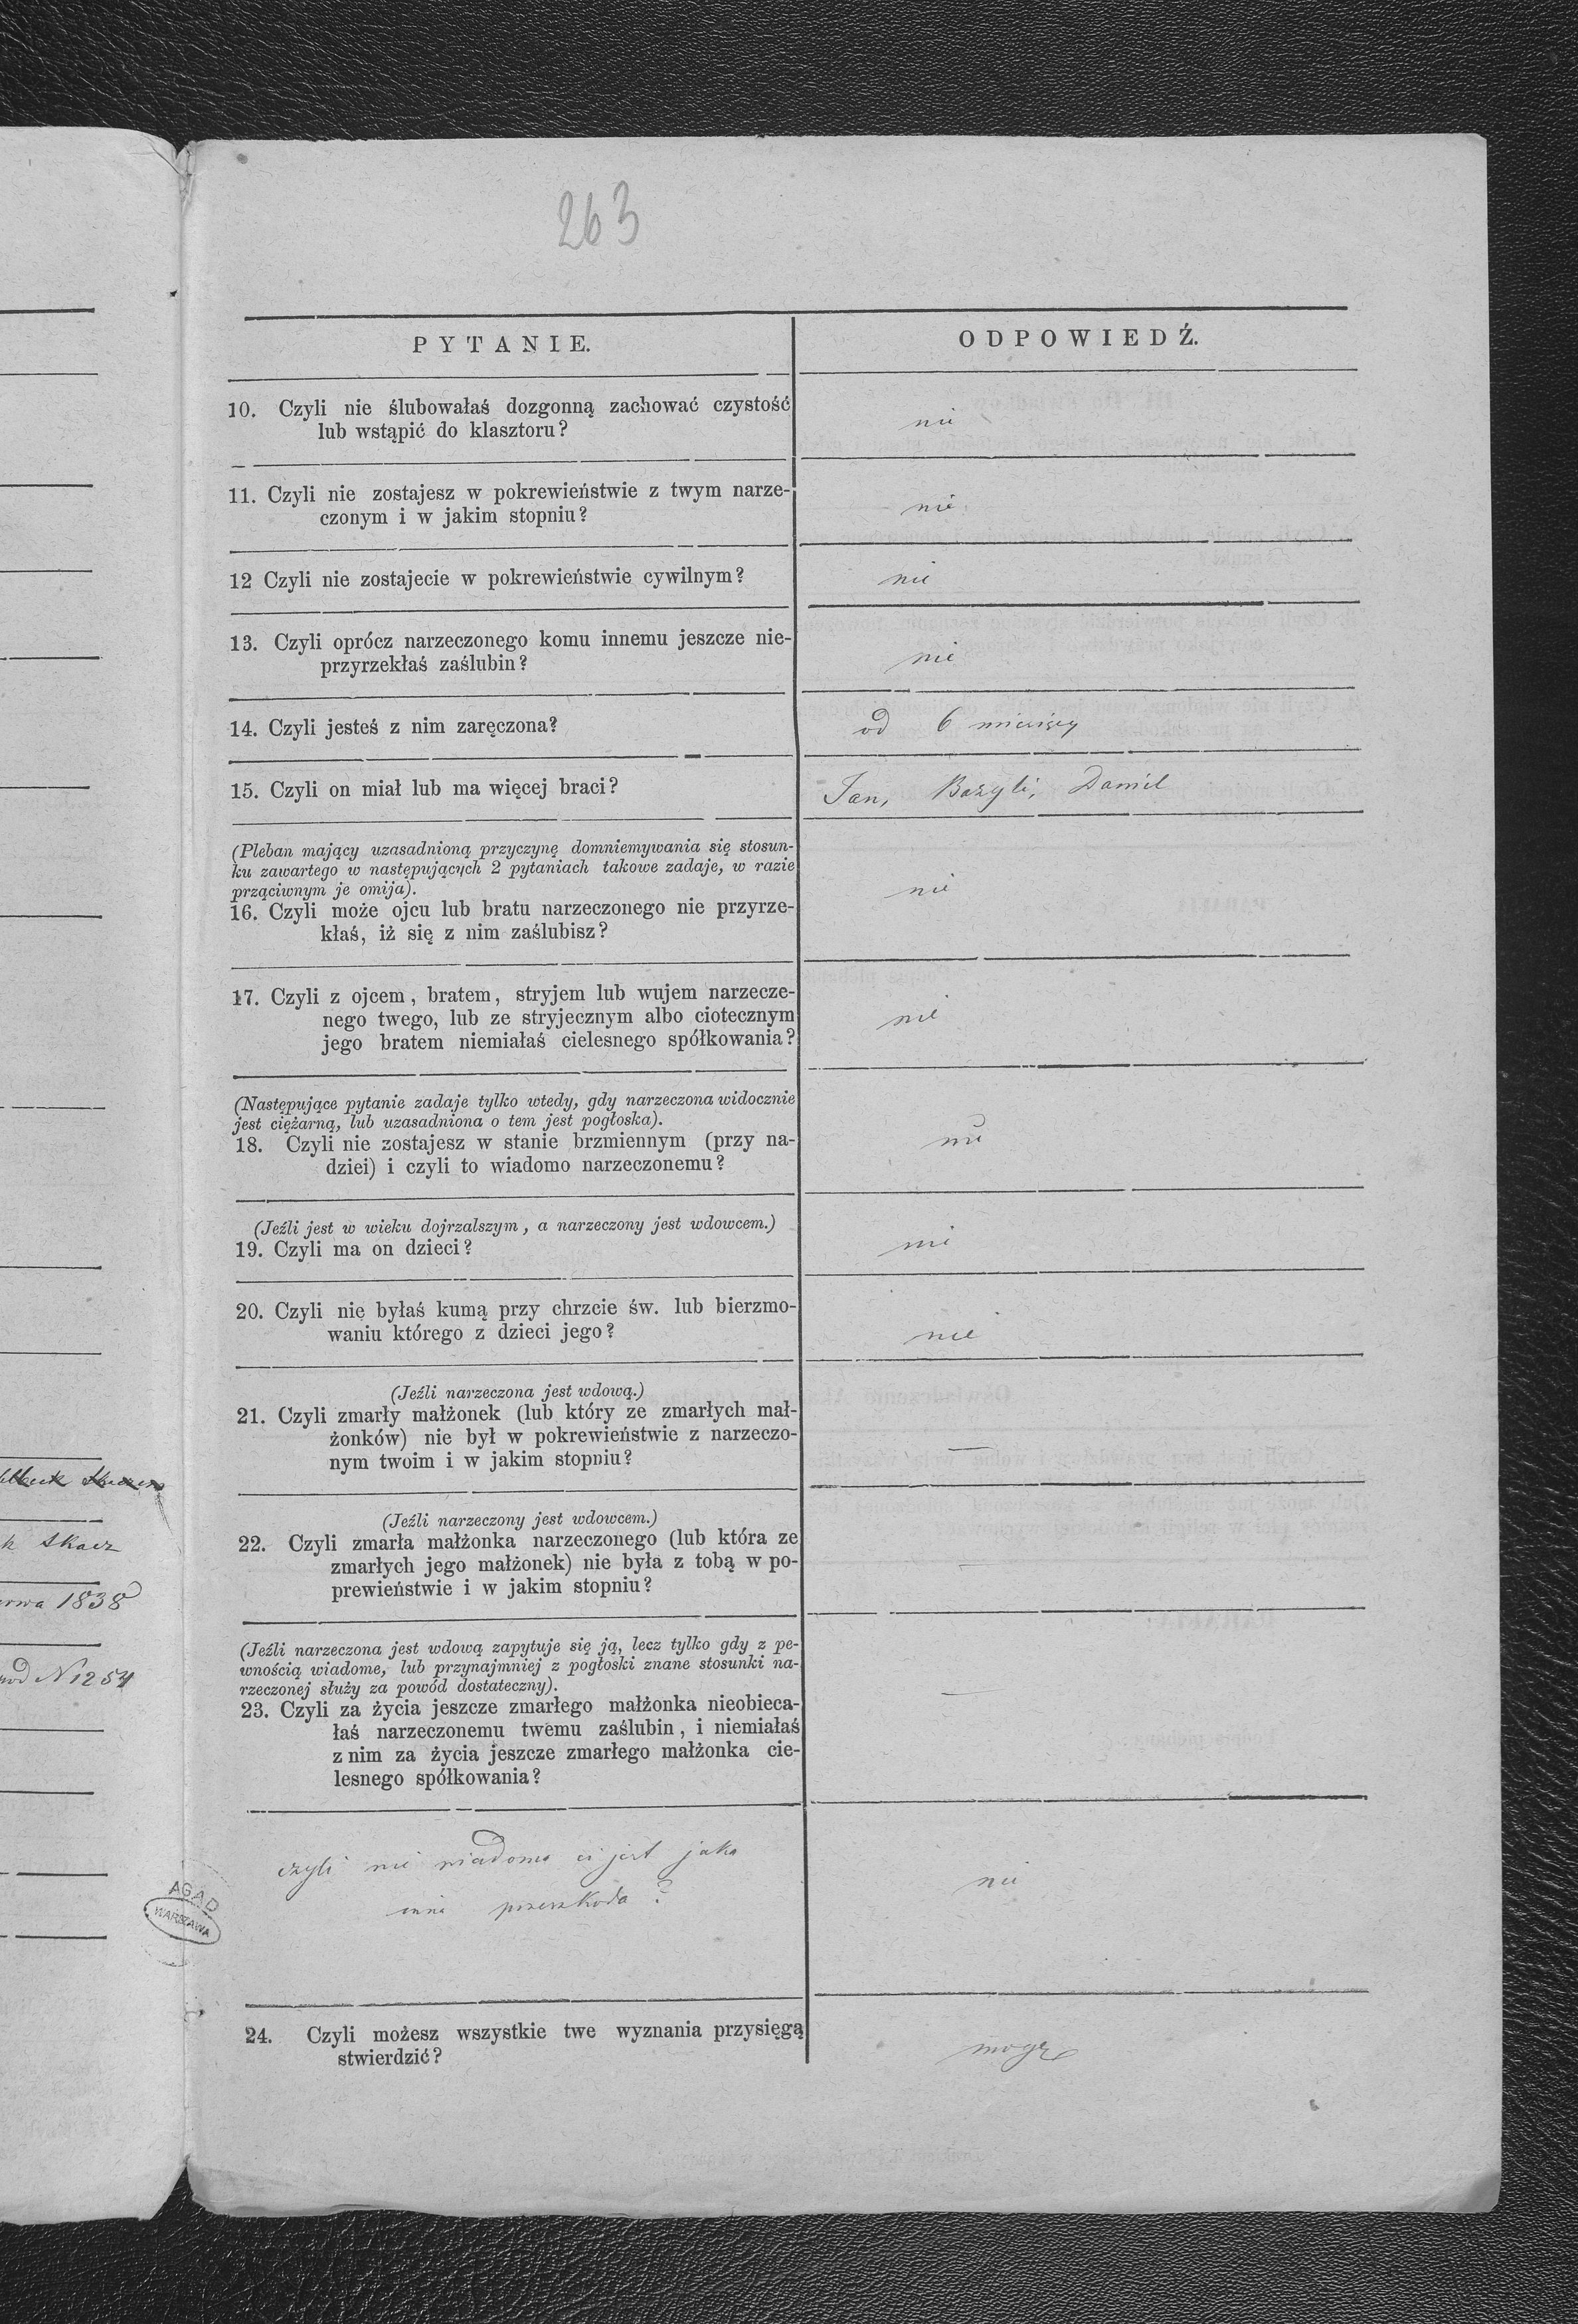 263
PYTANIE.
ODPOWIEDŹ.
10. Czyli nie ślubowałaś dozgonną zachować czystość
lub wstąpić do klasztoru?
nie
11. Czyli nie zostajesz w pokrewieństwie z twym narze-
czonym i w jakim stopniu?
nie
12 Czyli nie zostajecie w pokrewieństwie cywilnym?
nie
13. Czyli oprócz narzeczonego komu innemu jeszcze nie-
przyrzekłaś zaślubin?
nie
14. Czyli jesteś z nim zaręczona?
od 6 miesięcy
15. Czyli on miał lub ma więcej braci?
Jan, Bazyli, Daniil
(Pleban mający uzasadnioną przyczynę domniemywania się stosun-
ku zawartego w następujących 2 pytaniach takowe zadaje, w razie
prząciwnym je omija).
16. Czyli może ojcu lub bratu narzeczonego nie przyrze-
kłaś, iż się z nim zaślubisz?
nie
17. Czyli z ojcem, bratem, stryjem lub wujem narzecze-
nego twego, lub ze stryjecznym albo ciotecznym
jego bratem niemiałaś cielesnego spółkowania?
nie
(Następujące pytanie zadaje tylko wtedy, gdy narzeczona widocznie
jest ciężarną, lub uzasadniona o tem jest pogłoska).
18. Czyli nie zostajesz w stanie brzmiennym (przy na-
dziei) i czyli to wiadomo narzeczonemu?
nie
(Jeźli jest w wieku dojrzalszym, a narzeczony jest wdowcem.)
19. Czyli ma on dzieci?
nie
20. Czyli nie byłaś kumą przy chrzcie św. lub bierzmo-
waniu którego z dzieci jego?
nie
(Jeźli narzeczona jest wdową.)
21. Czyli zmarły małżonek (lub który ze zmarłych mał-
żonków) nie był w pokrewieństwie z narzeczo-
nym twoim i w jakim stopniu?
—
(Jeźli narzeczony jest wdowcem.)
22. Czyli zmarła małżonka narzeczonego (lub która ze
zmarłych jego małżonek) nie była z tobą w po-
prewieństwie i w jakim stopniu?
—
(Jeźli narzeczona jest wdową zapytuje się ją, lecz tylko gdy z pe-
wnością wiadome, lub przynajmniej z pogłoski znane stosunki na-
rzeczonej służy za powód dostateczny).
23. Czyli za życia jeszcze zmarłego małżonka nieobieca-
łaś narzeczonemu twemu zaślubin, i niemiałaś
z nim za życia jeszcze zmarłego małżonka cie-
lesnego spółkowania?
—
czyli nie wiadoma ci jest jaka
inna przeszkoda?
nie
24. Czyli możesz wszystkie twe wyznania przysięgą
stwierdzić?
mogę
Skacz
1838
pod N 1254
AGAD
WARSZAWA